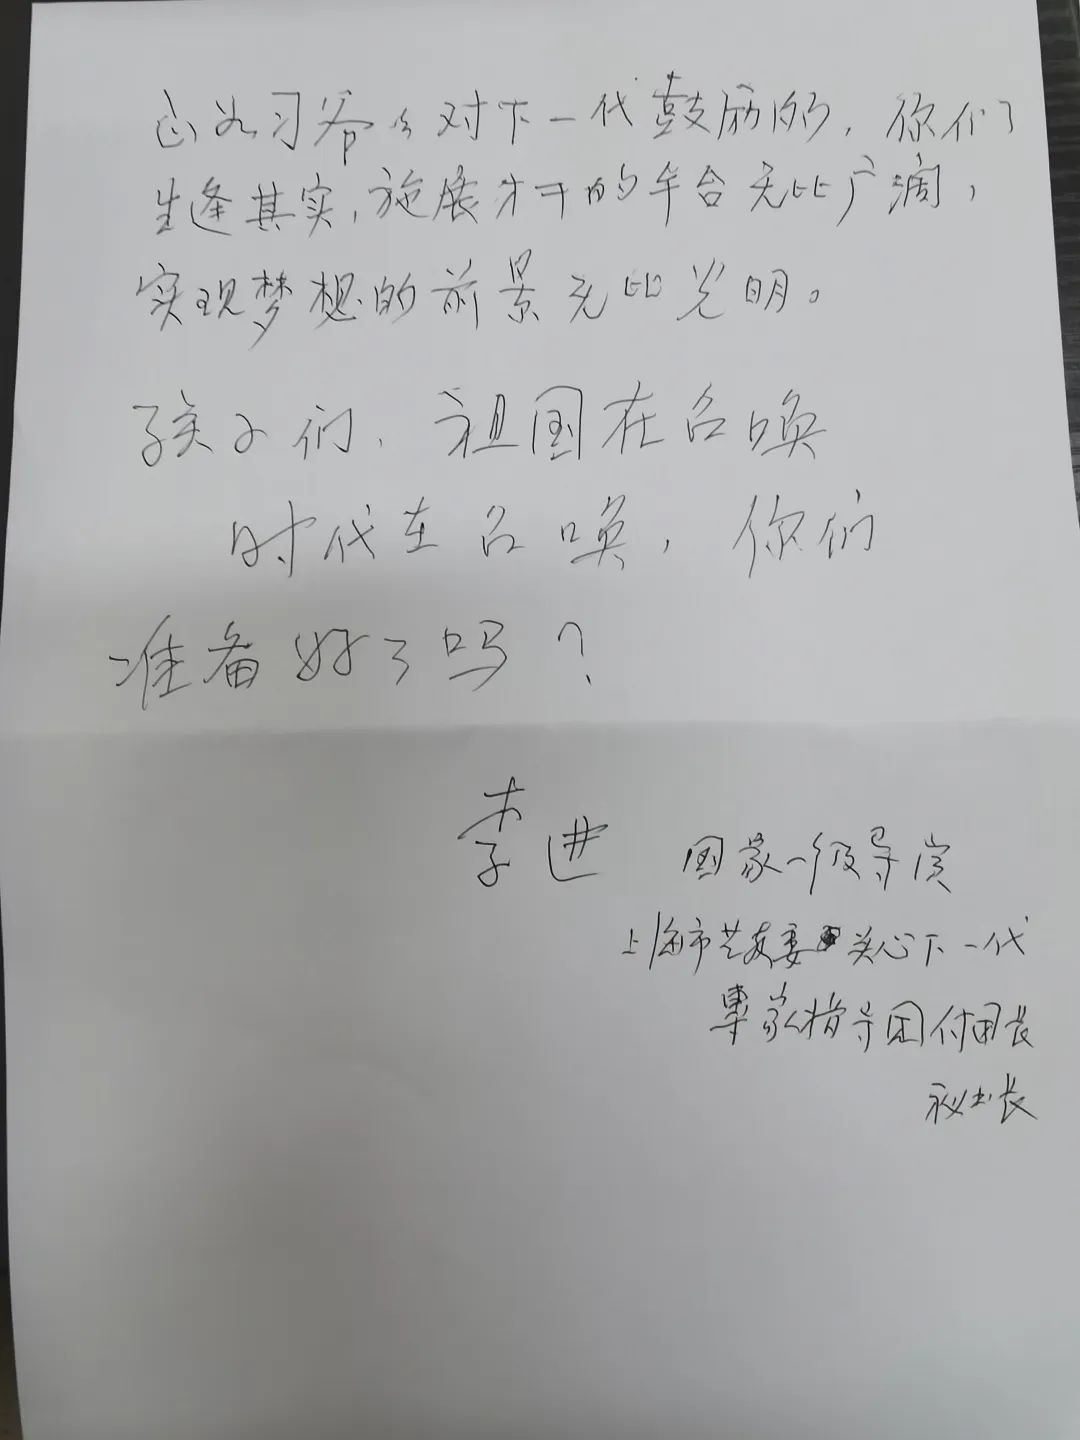 正如习爷爷对下一代鼓励的，你们
生逢其实，施展才干的平台无比广阔，
实现梦想的前景无比光明。
孩子们，祖国在召唤
时代在召唤，你们
准备好了吗？
李进 国家一级导演
上海市艺教委关心下一代
專家指导团付团长
秘书长